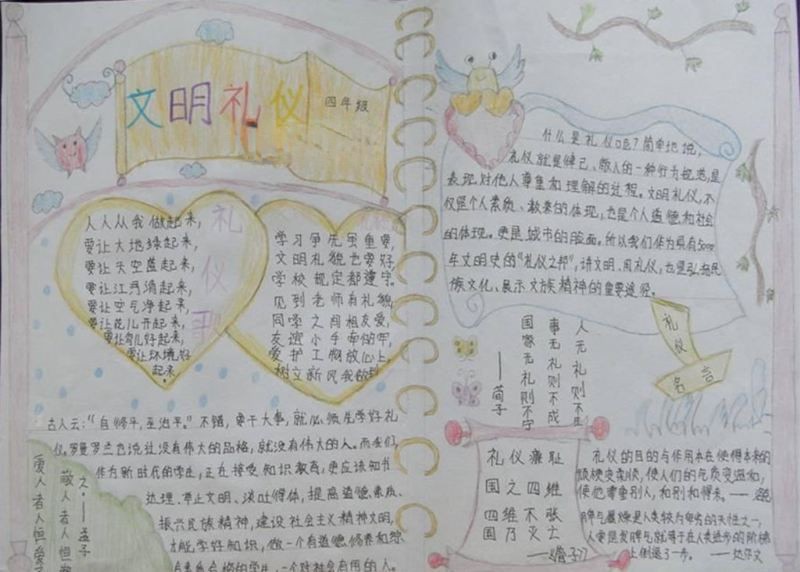 文明礼仪
四年级
礼仪歌
人人从我做起来,
要让大地绿起来,
要让天空蓝起来,
要让江河清起来,
要让空气净起来,
要让花儿开起来,
要让鸟儿好起来,
要让环境好
起来。
学习争先虽重要,
文明礼貌也要好,
学校规定都遵守。
见到老师有礼貌
同学之间相友爱,
友谊小手牵的牢,
爱护工物放心上。
树立新风我做到
古人云:“自修平,至治平。”不错,要干大事,就必须先学好礼
仪。罗曼罗兰也说过没有伟大的品格,就没有伟大的人。而我们
作为新时代的学生,正在接受知识教育,更应该知书
达理、举止文明、谈吐得体,提高道德素质、
振兴民族精神,建设社会主义精神文明,
才能学好知识,做一个有道德修养和
的学生,一个对社会有用的人。
爱人者人恒爱
敬人者人恒
之。——孟子
什么是礼仪呢?简单地说,
礼仪就是律己、敬人的一种行为规范,是
表现对他人尊重和理解的过程。文明礼仪,不
仅是个人素质、教养的体现,也是个人道德和社会
的体现。更是城市的脸面。所以我们作为具有5000
年文明史的“礼仪之邦”,讲文明、用礼仪,也是弘扬民
族文化、展示文族精神的重要途径。
礼仪
名言
人无礼则不
事无礼则不成
国家无礼则不守
——荀子
礼仪廉耻
国之四维
四维不张
国乃灭亡
礼仪的目的与作用本在使得本来的
顽梗变柔顺,使人们的气质变温和,
使他尊重别人,和别
人类
上倒退了一步。——达尔文